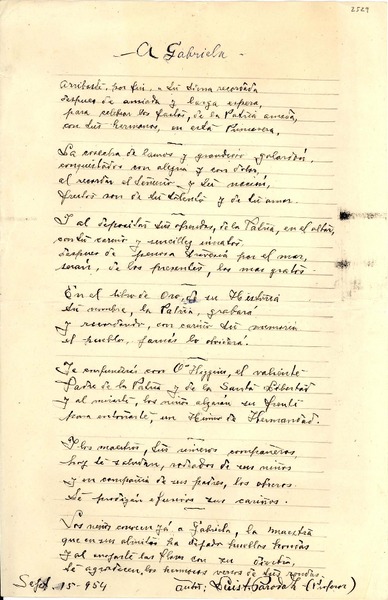 2529
A Gabriela
Arribaste, por fin, a tu tierra recordada
despues de ansiada y larga espera,
para celebrar los fastos, de la Patria amada,
con tus hermanos, en esta Primavera.
La cosecha de lauros y grandeza galardón,
conquistados con alegria y con dolor,
al recordar el terruño y tu nación,
frutos son de tu talento y de tu amor.
I al depositar tus ofrendas, de la Patria, en el altar,
con tu cariño y sencillez innatos
despues de penosa travesía por el mar,
serán, de los presentes, los mas gratos.
En el libro de Oro, de su Historia
tu nombre, la Patria, grabará
y recordando, con cariño tu memoria
el pueblo, jamás lo olvidará.
Te confundirás con O'Higgins, el valiente
Padre de la Patria y de la Santa Libertad
y al mirarte, los niños alzarán su frente
para entonarte, un Himno de Hermandad.
I los maestros, tus sinceros compañeros,
hoy te saludan, rodeados de sus niños
y en compañia de sus padres, los obreros
te prodigan efusivos sus cariños.
Los niños conocen yá a Gabriela, la maestra
que en sus ha dejado huellas hondas
y al enviarte las flores con su
te agradecen, los hermosos versos de tus rondas.
Sept. 15-954 autor: Luis A. (Profesor)